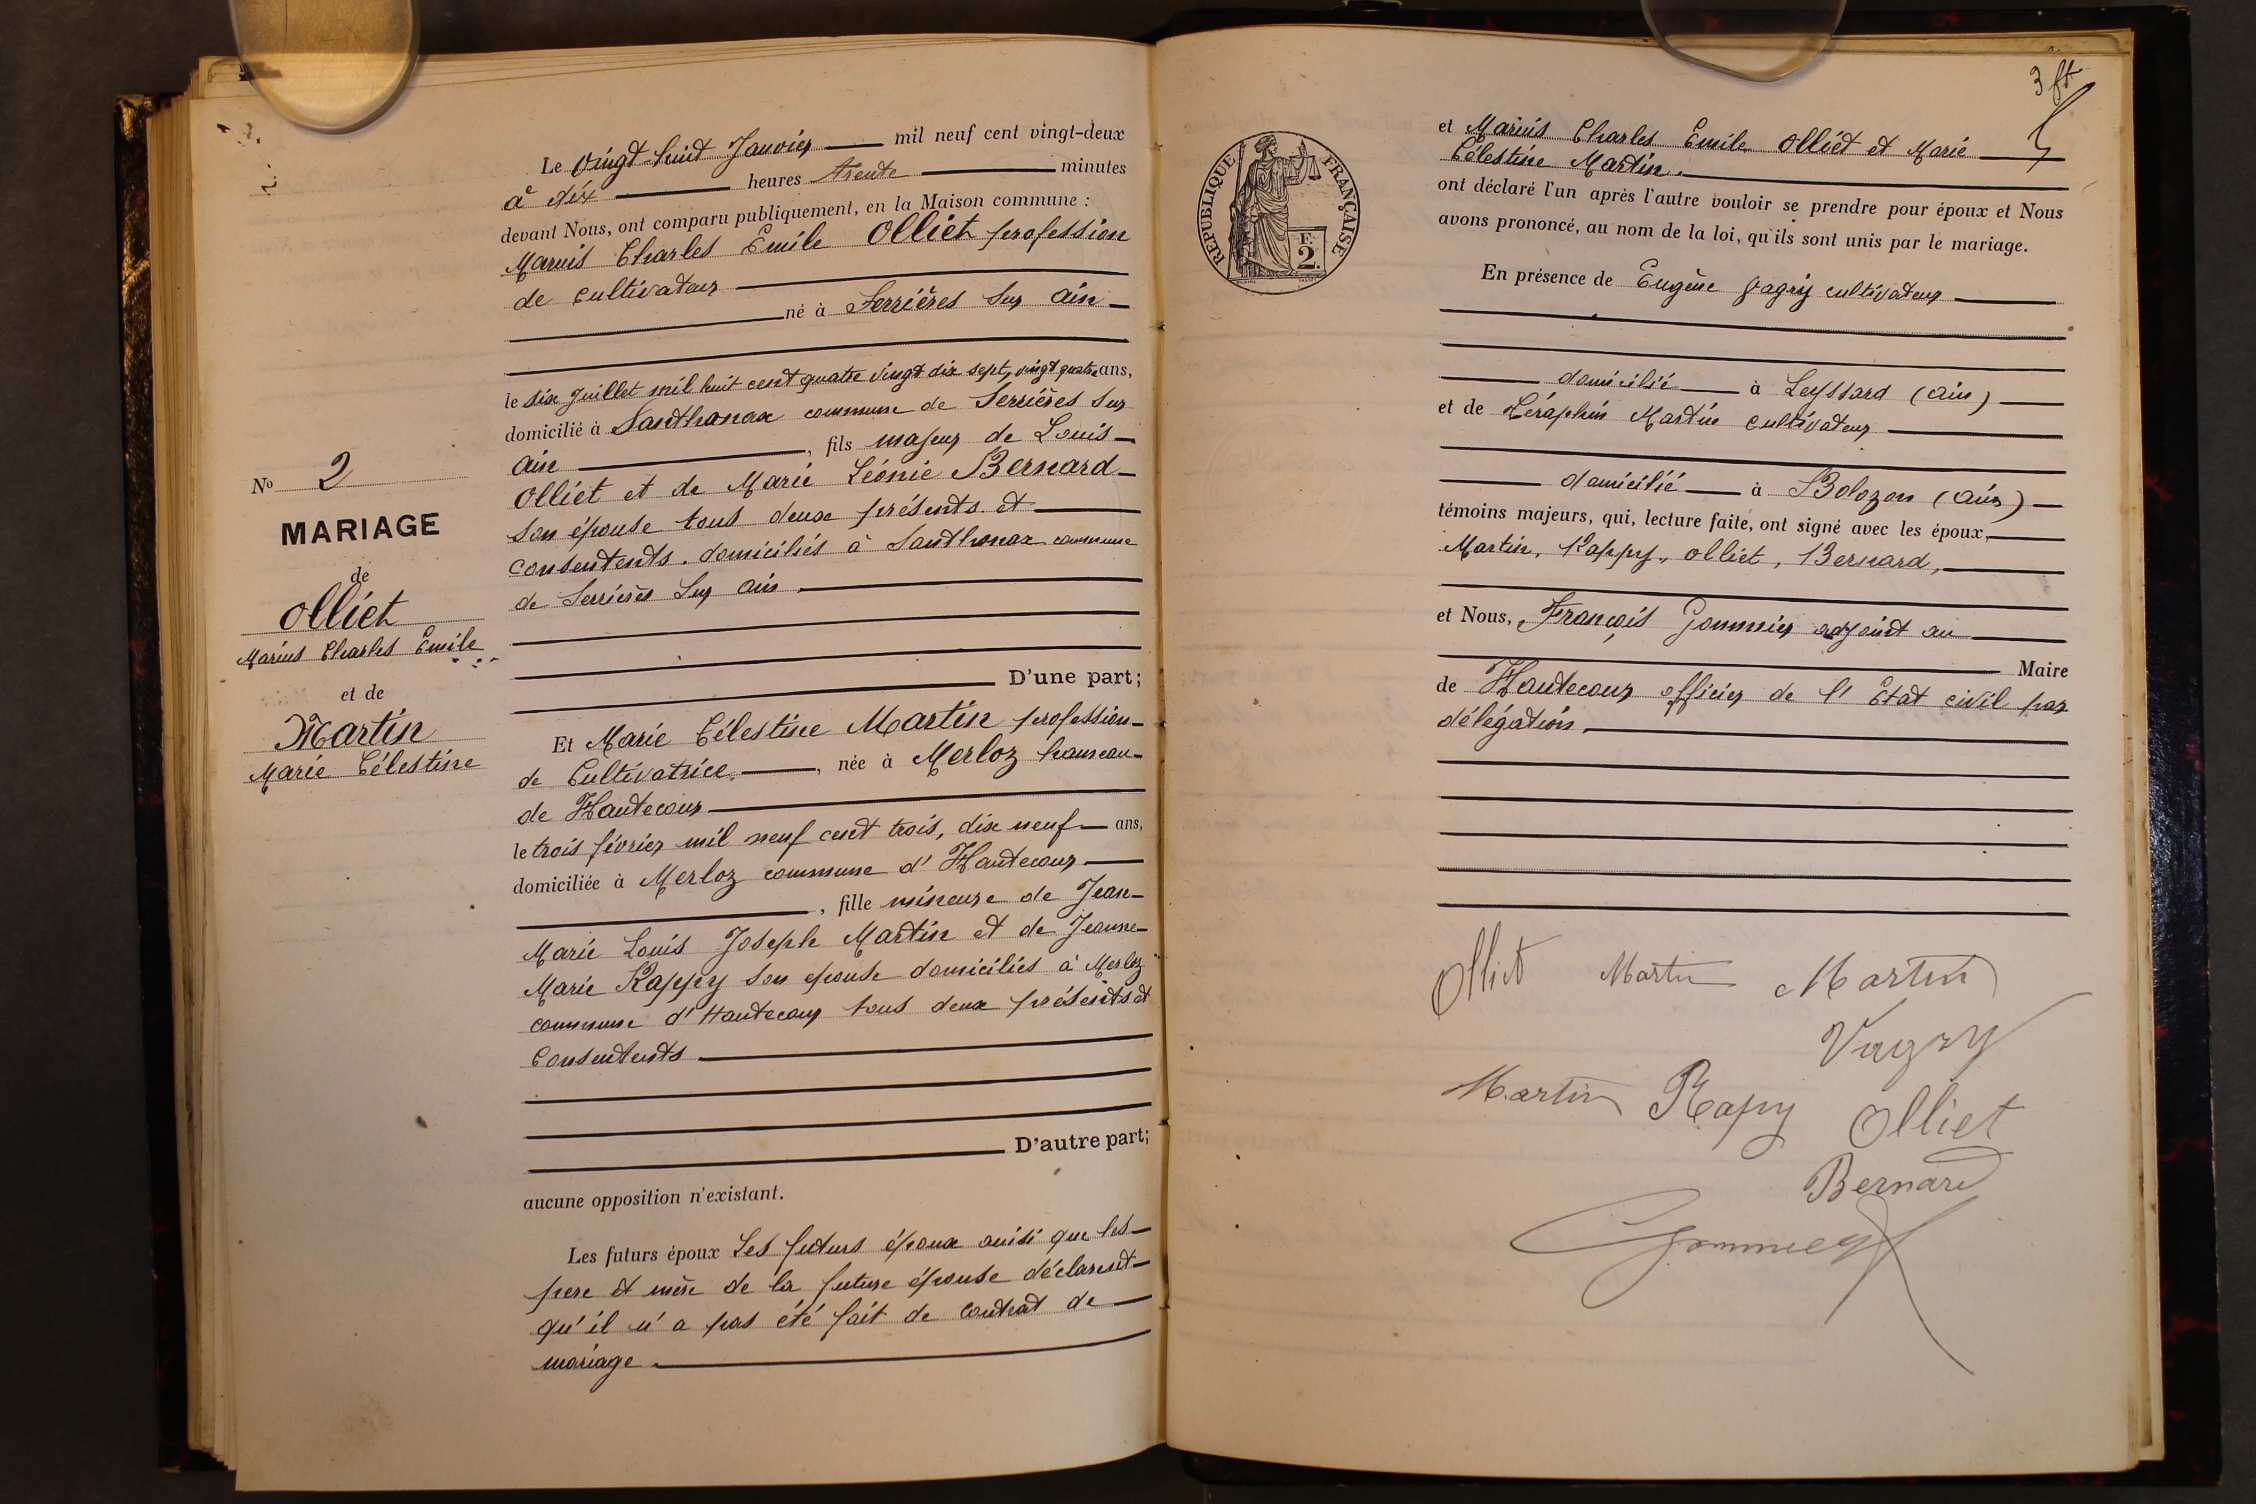 Le vingt-huit Janvier mil neuf cent vingt-deux
à dix heures trente minutes
devant Nous, ont comparu publiquement, en la Maison commune :
Marius Charles Emile Olliet profession
de cultivateur
né à Serrières sur ain
le six juillet mil huit cent quatre vingt dix sept, vingt quatre ans,
domicilié à Santhonax commune de Serrières sur
ain , fils majeur de Louis
Olliet et de Marie Léonie Bernard
son épouse tous deux présents et
consentents. domiciliés à Santhonax commune
de Serrières sur ain.
D'une part;
N° 2
MARIAGE
de
Olliet
Marius Charles Emile
et de
Martin
Marie Célestine
Et Marie Célestine Martin profession
de Cultivatrice, née à Merloz hameau
de Hautecour
le trois février mil neuf cent trois, dix neuf ans,
domiciliée à Merloz commune d'Hautecour
, fille mineure de Jean
Marie Louis Joseph Martin et de Jeanne
Marie Rappy son epouse domiciliés à Merloz
commune d'Hautecour tous deux présents et
consentents
D'autre part;
aucune opposition n'existant.
Les futurs époux Les futurs époux ainsi que les
pere et mère de la future épouse déclarent
qu'il n'a pas été fait de contrat de
mariage.
3 ft
REPUBLIQUE FRANÇAISE
F.
2.
et Marius Charles Emile Olliet et Marie
Célestine Martin.
ont déclaré l'un après l'autre vouloir se prendre pour époux et Nous
avons prononcé, au nom de la loi, qu'ils sont unis par le mariage.
En présence de Eugène Vagry cultivateur
domicilié à Leyssard (ain)
et de Séraphin Martin cultivateur
domicilié à Bolozon (ain)
témoins majeurs, qui, lecture faite, ont signé avec les époux,
Martin, Rappy, Olliet, Bernard,
et Nous, François Gommier adjoint au
Maire
de Hautecour officier de l'Etat civil par
délégation.
Olliet Martin Martin
Vagry
Martin Rapy Olliet
Bernard
Gommier